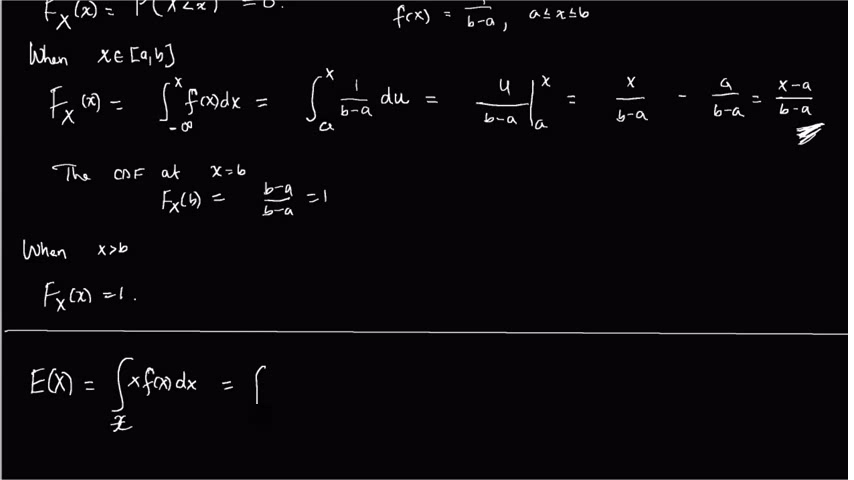 F_X(x) = P(X<x) = 0. f(x) = 1/(b-a), a ≤ x ≤ b
When x ∈ [a,b]
F_X(x) = ∫_{-∞}^{x} f(x)dx = ∫_{a}^{x} 1/(b-a) du = u/(b-a) |_{a}^{x} = x/(b-a) - a/(b-a) = (x-a)/(b-a)
The CDF at x=b
F_X(b) = (b-a)/(b-a) = 1
When x>b
F_X(x) = 1.
E(X) = ∫_x x f(x) dx = ∫